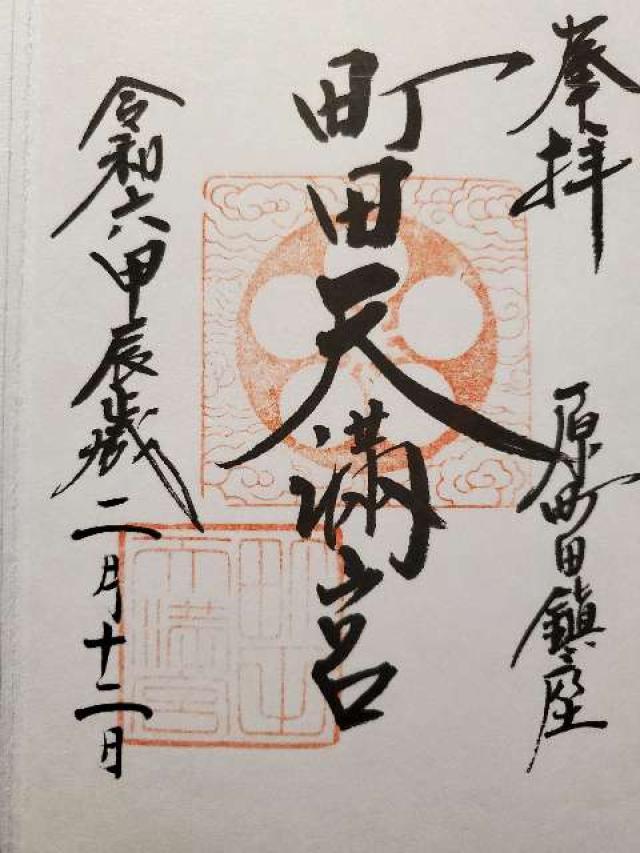 奉拝
原町田鎮座
町田天満宮
令和六甲辰歳二月十二日